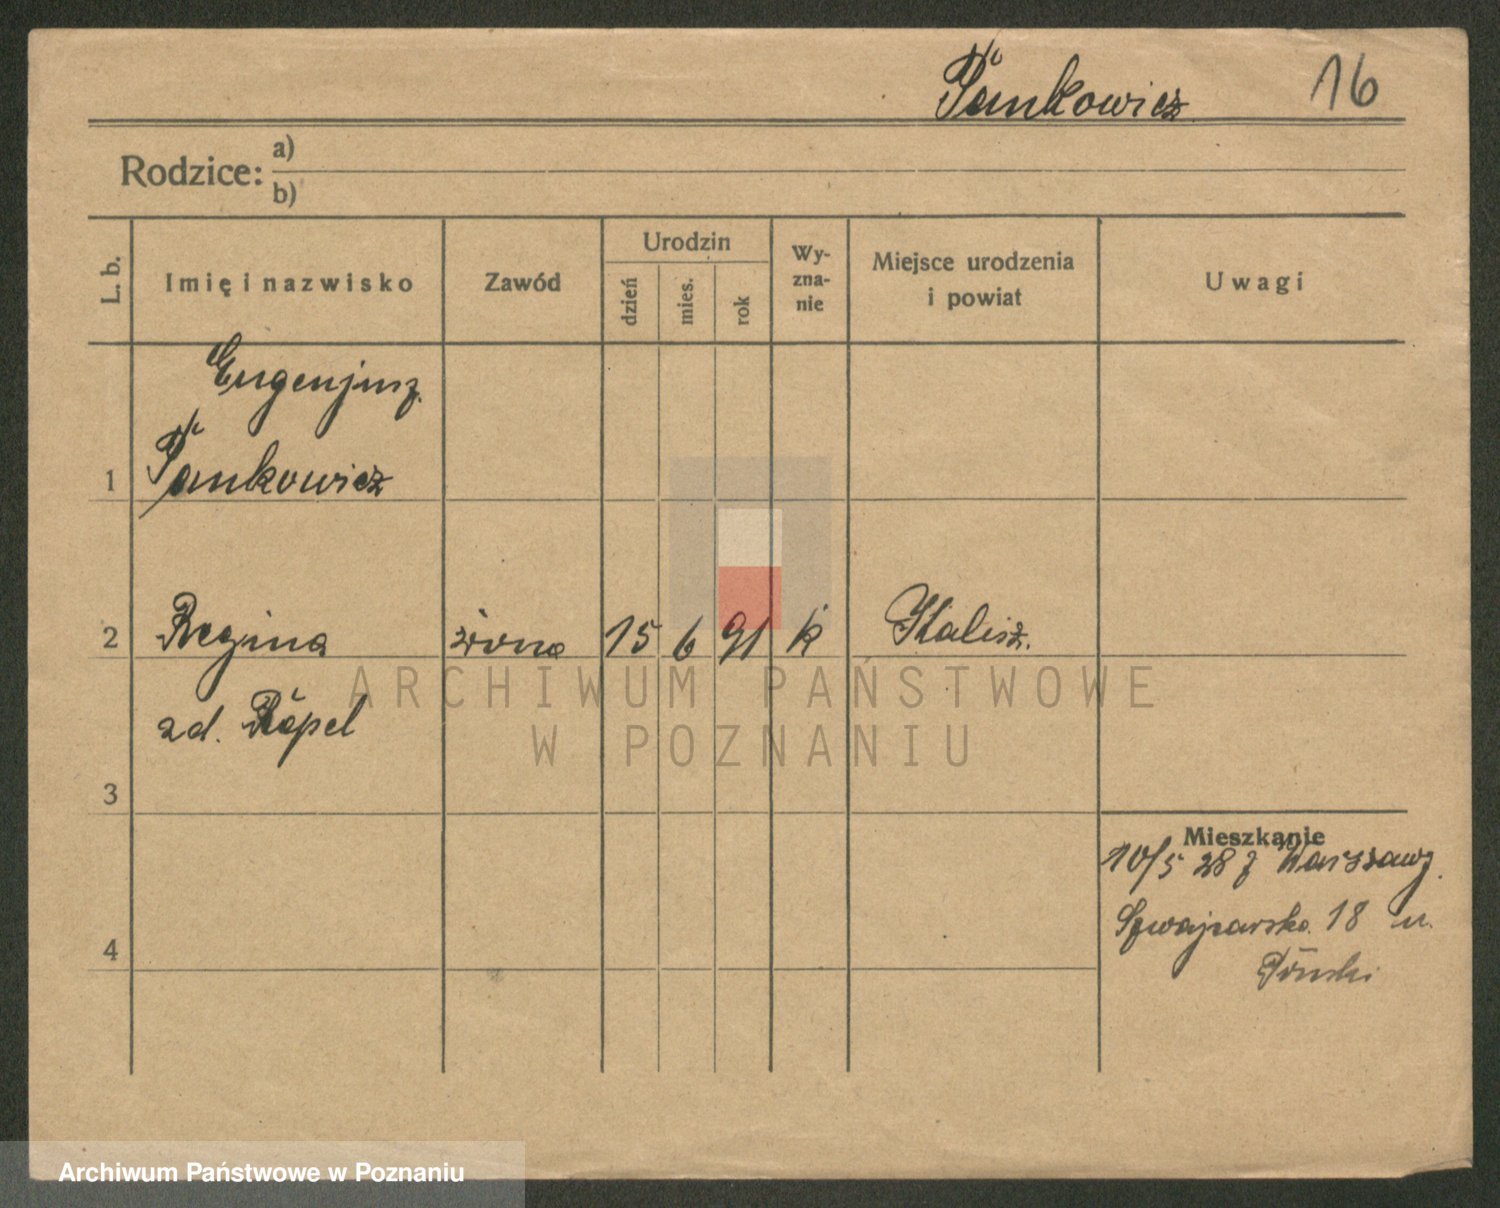 Pankowicz 16
Rodzice: a)
b)
L. b. Imię i nazwisko Zawód Urodzin dzień mies. rok Wy-zna-nie Miejsce urodzenia i powiat Uwagi
Eugenjusz
1 Pankowicz
2 Regina żona 15 6 91 k Kalisz.
zd.
3
Mieszkanie
10/5 28 z Warszawy.
Szwajcarska 18 u.
4
ARCHIWUM PAŃSTWOWE
W POZNANIU
Archiwum Państwowe w Poznaniu